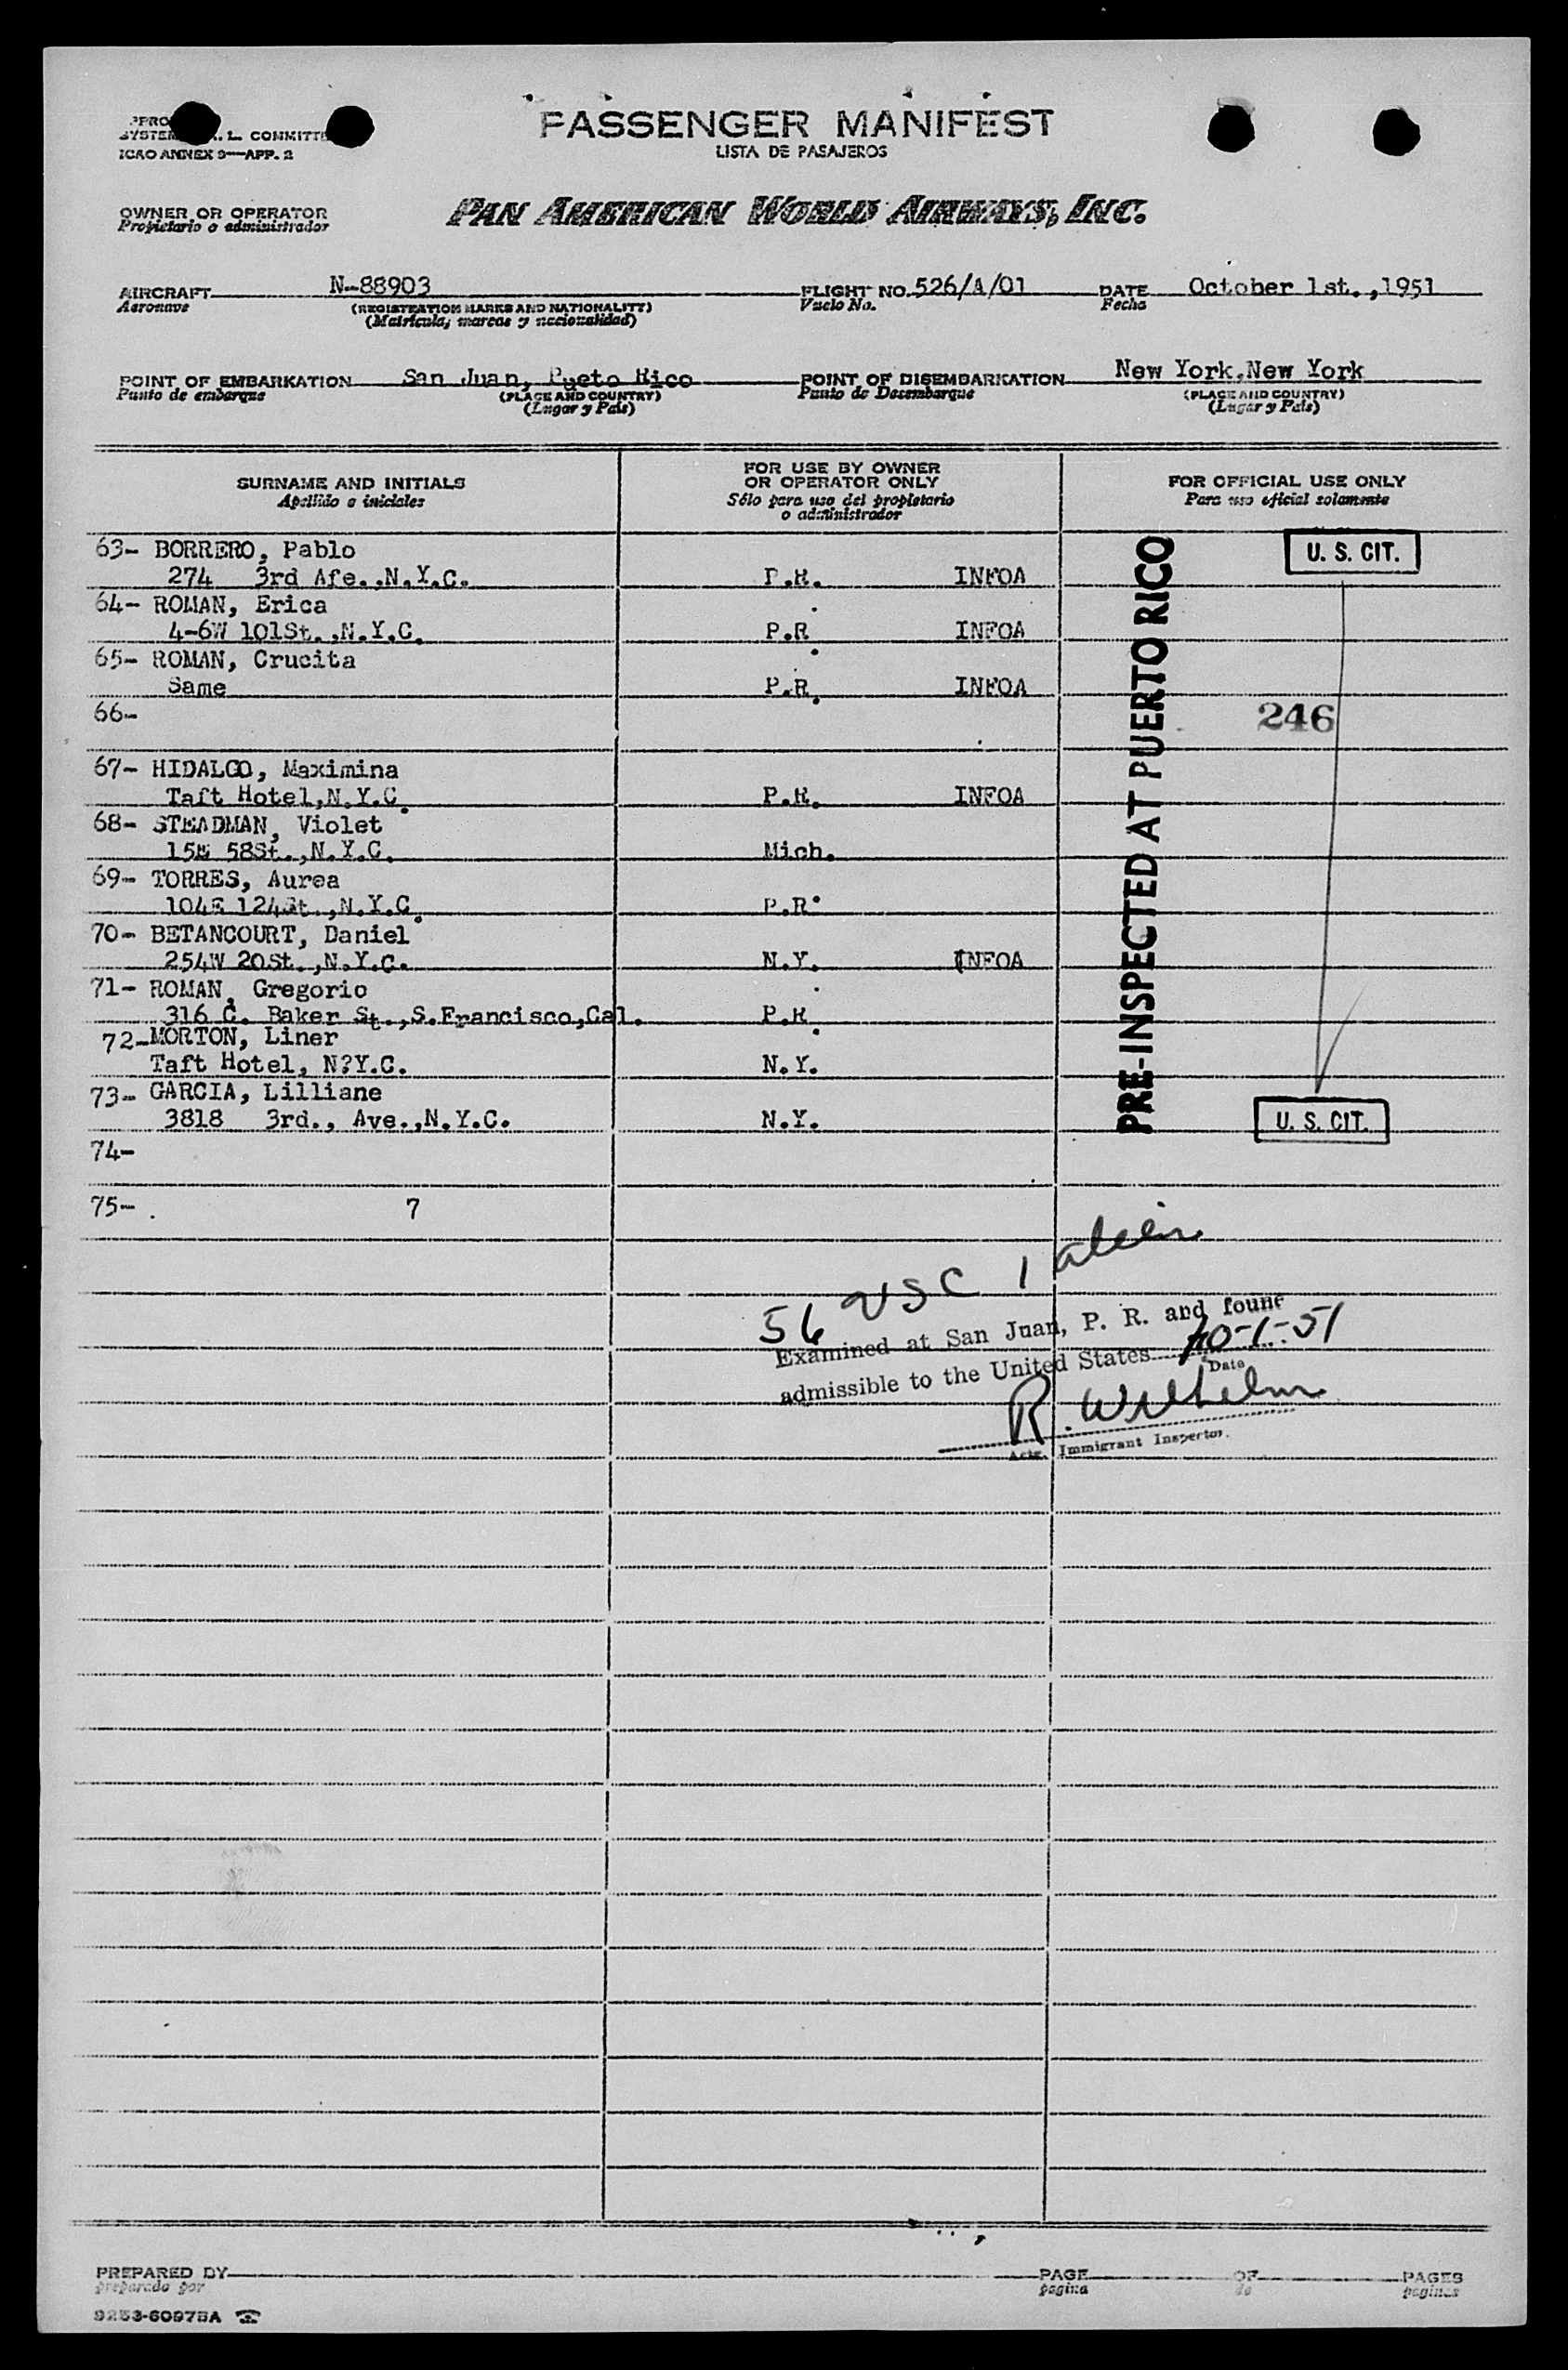 PASSENGER MANIFEST
LISTA DE PASAJEROS
L. COMMITTE
ICAO ANNEX 9—APP. 2
OWNER OR OPERATOR
Propietario o administrador
PAN AMERICAN WORLD AIRWAYS, INC.
AIRCRAFT N-88903 FLIGHT NO. 526/A/01 DATE October 1st.,1951
Aeronave (REGISTRATION MARKS AND NATIONALITY) Vuelo No. Fecha
(Matrícula; marcas y nacionalidad)
POINT OF EMBARKATION San Juan, Pueto Rico POINT OF DISEMBARKATION New York,New York
Punto de embarque (PLACE AND COUNTRY) Punto de Desembarque (PLACE AND COUNTRY)
(Lugar y País) (Lugar y País)
SURNAME AND INITIALS FOR USE BY OWNER OR OPERATOR ONLY FOR OFFICIAL USE ONLY
Apellido e iniciales Sólo para uso del propietario o administrador Para uso oficial solamente
63- BORRERO, Pablo U. S. CIT.
274 3rd Afe.,N.Y.C. P.R. INFOA
64- ROMAN, Erica
4-6W 101St.,N.Y.C. P.R. INFOA
65- ROMAN, Crucita
Same P.R. INFOA
66- 246
67- HIDALGO, Maximina
Taft Hotel,N.Y.C. P.R. INFOA
68- STEADMAN, Violet
15E 58St.,N.Y.C. Mich.
69- TORRES, Aurea
104E 124St.,N.Y.C. P.R.
70- BETANCOURT, Daniel
254W 20St.,N.Y.C. N.Y. INFOA
71- ROMAN, Gregorio
316 C. Baker St.,S.Francisco,Cal. P.R.
72-MORTON, Liner
Taft Hotel, N?Y.C. N.Y.
73- GARCIA, Lilliane
3818 3rd., Ave.,N.Y.C. N.Y. U. S. CIT.
PRE-INSPECTED AT PUERTO RICO
74-
75- . 7
56 USC 1 alien
Examined at San Juan, P. R. and found
admissible to the United States 10-1-51
Date
R. Wilhelm
Actg. Immigrant Inspector.
PREPARED BY PAGE OF PAGES
preparado por pagina de paginas
9253-60975A